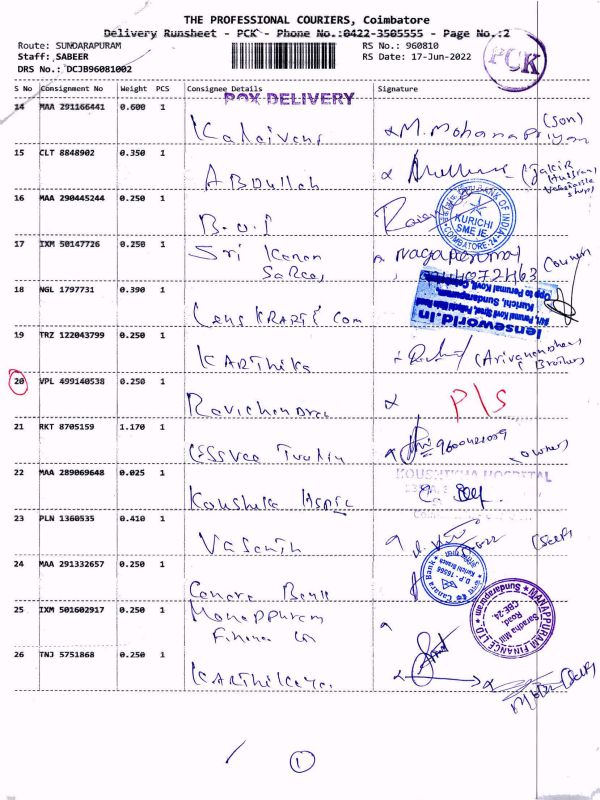 THE PROFESSIONAL COURIERS, Coimbatore
Delivery Runsheet - PCK - Phone No.:0422-3505555 - Page No.:2
Route: SUNDARAPURAM RS No.: 960810
Staff: SABEER RS Date: 17-Jun-2022
DRS No.: DCJB96081002
PCK
S No Consignment No Weight PCS Consignee Details Signature
POX DELIVERY
14 MAA 291166441 0.600 1 Kalaivani M. Mohanapriyan (Son)
15 CLT 8848902 0.350 1 ABDullah
16 MAA 290445244 0.250 1 B.O.I
BANK OF INDIA
KURICHI
SME IE
COIMBATORE-24
17 IXM 50147726 0.250 1 Sri Kanan Nagaperumal
18 NGL 1797731 0.390 1 LensKRART Com
lenseworld.in
Kurichi, Sundarapuram,
Opp to Perumal Kovil, Coimbatore
19 TRZ 122043799 0.250 1 KARThika
Brother)
20 VPL 499140538 0.250 1 Ravichandra P/S
21 RKT 8705159 1.170 1 9600422059 (owner)
22 MAA 289069648 0.025 1 Koushika
KOUSHIKHA HOSPITAL
23 PLN 1360535 0.410 1 Vasanth (Self)
24 MAA 291332657 0.250 1 Canara Bank
Canara Bank
D.P - 16566
Kurichi Branch
25 IXM 501602917 0.250 1 Manappuram
Finance
MANAPPURAM FINANCE LTD.
Saradha Mill
Road
CBE-24.
Sundarapuram
26 TNJ 5751868 0.250 1 KARThikeya (Self)
1